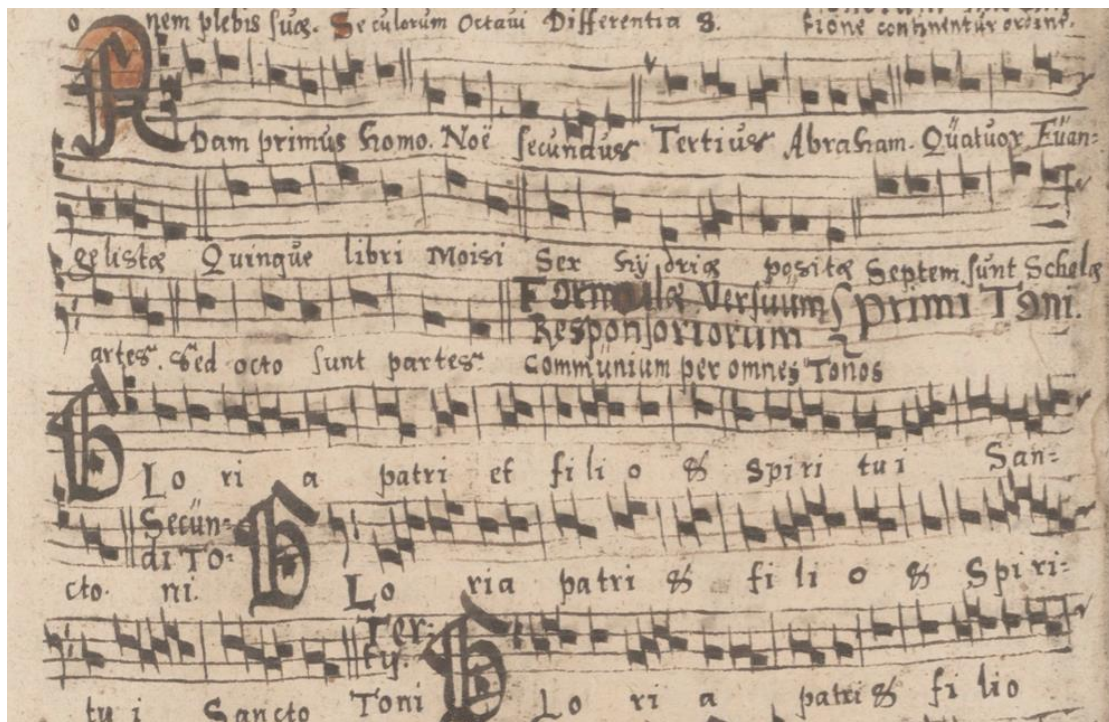 o nem plebis suæ. Seculorum Octavi Differentia 8.
tione continentur ordine.
ADam primus homo. Noë secundus Tertius Abraham. Quatuor Evan=
gelistæ Quinque libri Moisi Sex hydriæ positæ Septem sunt Scholæ
artes. Sed octo sunt partes.
Formulæ Versuum Responsoriorum Primi Toni.
Communium per omnes Tonos
GLo ri a patri et fi li o & Spiri tui San=
cto. Secun=
di To=
ni. GLo ria patri & fi li o & Spiri=
tu i Sancto Ter=
tij.
Toni GLo ri a patri & fi lio